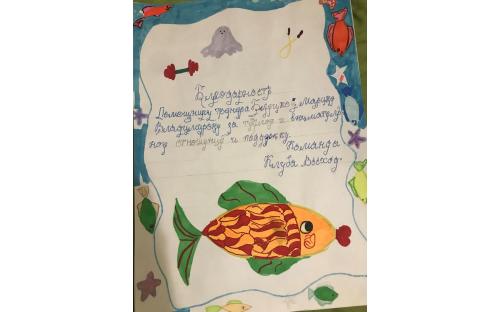 Благодарность
Помощнику тренера Гнудиной Марине
Владимировну за труд и внимательн
ное отношение и поддержку.
Команда
Клуба Восход.